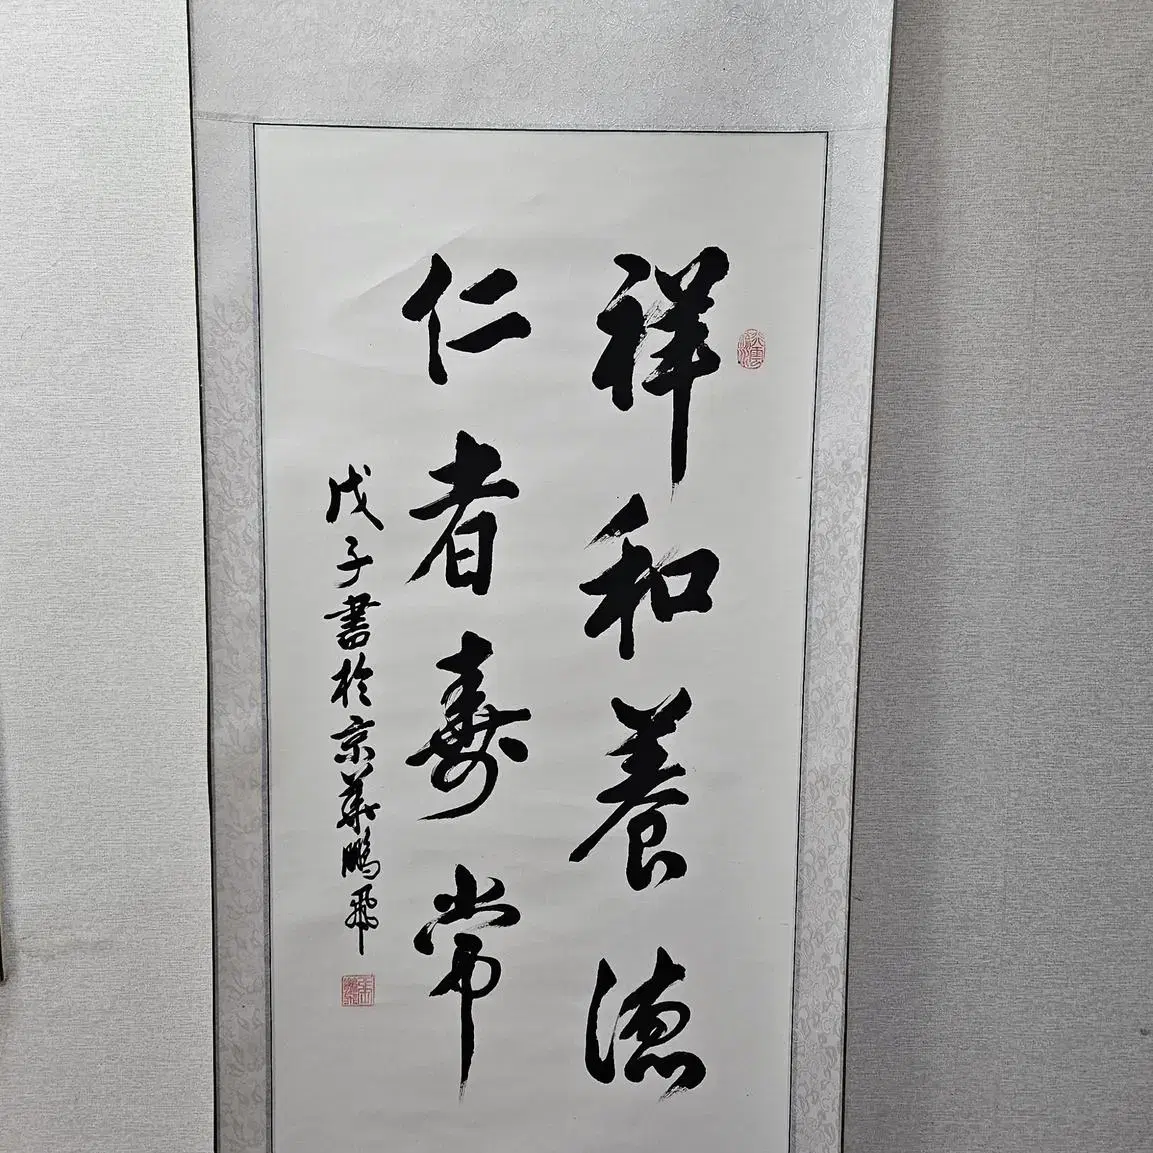 祥和養德
仁者壽常
戊子書於京華鵬飛